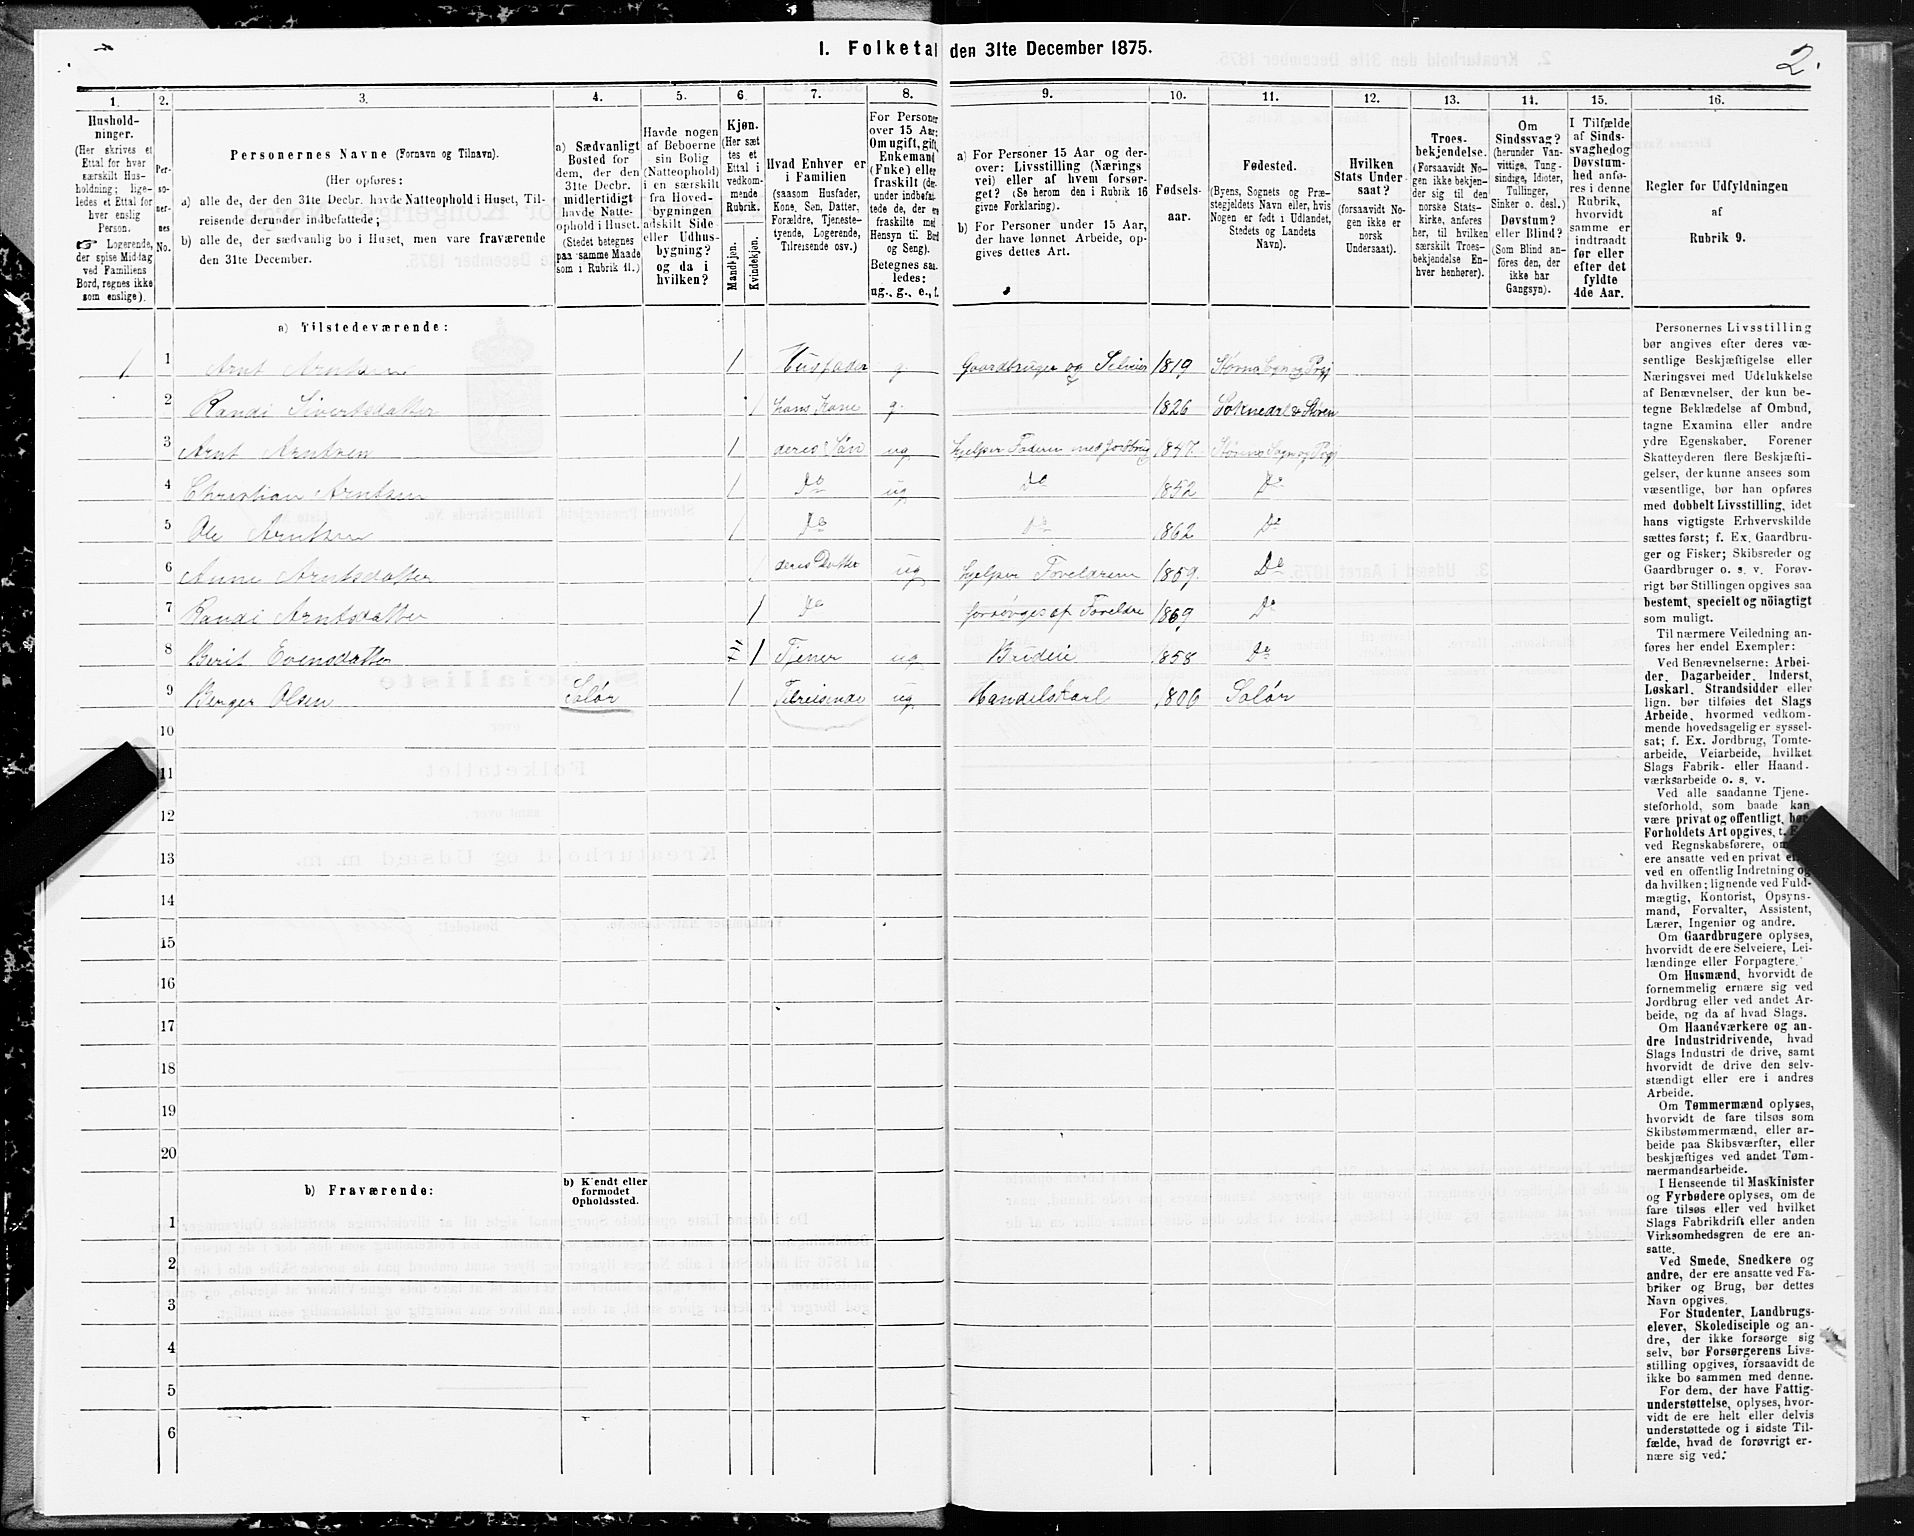 I. Folketal den 31te December 1875.
2.
1.
2.
3.
4.
5.
6.
7.
8.
9.
10.
11.
12.
13.
14.
15.
16.
Hushold-
ninger.
(Her skrives et
Ettal for hver
særskilt Hus-
holdning; lige-
ledes et Ettal for
hver enslig
Person.
☞ Logerende,
der spise Middag
ved Familiens
Bord, regnes ikke
som enslige).
Per-
so-
ner-
nes
No.
Personernes Navne (Fornavn og Tilnavn).
(Her opføres:
a) alle de, der den 31te Decbr. havde Natteophold i Huset, Til-
reisende derunder indbefattede;
b) alle de, der sædvanlig bo i Huset, men vare fraværende
den 31te December.
a) Sædvanligt
Bosted for
dem, der den
31te Decbr.
midlertidigt
havde Natte-
ophold i Huset.
(Stedet betegnes
paa samme Maade
som i Rubrik 11.)
Havde nogen
af Beboerne
sin Bolig
(Natteophold)
i en særskilt
fra Hoved-
bygningen
adskilt Side-
eller Udhus-
bygning?
og da i
hvilken?
Kjøn.
(Her sæt-
tes et
Ettal i
vedkom-
mende
Rubrik.
Mandkjøn.
Kvindekjøn.
Hvad Enhver er
i Familien
(saasom Husfader,
Kone, Søn, Datter,
Forældre, Tjeneste-
tyende, Logerende,
Tilreisende osv.)
For Personer
over 15 Aar:
Om ugift, gift,
Enkemand
(Enke) eller
fraskilt (de-
under indbefat-
tede de, der ere
fraskilte med
Hensyn til Bord
og Seng).
Betegnes saa-
ledes:
ug., g., e., f.
a) For Personer 15 Aar og der-
over: Livsstilling (Nærings-
vei) eller af hvem forsør-
get? (Se herom den i Rubrik 16
givne Forklaring).
b) For Personer under 15 Aar,
der have lønnet Arbeide, op-
gives dettes Art.
Fødsels-
aar.
Fødested.
(Byens, Sognets og Præ-
stegjeldets Navn eller, hvis
Nogen er født i Udlandet,
Stedets og Landets
Navn).
Hvilken
Stats Under-
saat?
(forsaavidt No-
gen ikke er
norsk
Undersaat).
Troes-
bekjendelse.
(Forsaavidt No-
gen ikke bekjen-
der sig til den
norske Stats-
kirke, anføres
her, til hvilken
særskilt Troes-
bekjendelse En-
hver henhører).
Om
Sindssvag?
(herunder Van-
vittige, Tung-
sindige, Idioter,
Tullinger,
Sinker o. desl.)
Døvstum?
eller Blind?
(Som Blind an-
føres den, der
ikke har
Gangsyn).
I Tilfælde
af Sinds-
svaghed og
Døvstum-
hed anfø-
res i denne
Rubrik,
hvorvidt
samme er
indtraadt
før eller
efter det
fyldte
4de Aar.
Regler for Udfyldningen
af
Rubrik 9.
a) Tilstedeværende:
1 1 Arnt Arntsen 1 Husfader g. Gaardbruger og Selveier 1819 Størens Sogn og Prgj
2 Randi Sivertsdatter 1 hans Kone g. 1826 Soknedal & Støren
3 Arnt Arntsen 1 deres Søn ug Hjelper Faderen med Jordbrug 1847 Størens Sogn og Prgj
4 Christian Arntsen 1 Do ug Do 1852 Do
5 Ole Arntsen 1 Do Do 1862 Do
6 Anne Arntsdatter 1 deres Datter ug Hjelper Foreldrene 1859 Do
7 Randi Arntsdatter 1 Do forsørges af Foreldre 1869 Do
8 Berit Evensdatter 1 Tjener ug Budeie 1858 Do
9 Berger Olsen Solør 1 Tilreisende ug Handelskarl 1806 Solør
10
11
12
13
14
15
16
17
18
19
20
b) Fraværende:
b) Kjendt eller
formodet
Opholdssted.
1
2
3
4
5
6
Personernes Livsstilling
bør angives efter deres væ-
sentlige Beskjæftigelse eller
Næringsvei med Udelukkelse
af Benævnelser, der kun be-
tegne Beklædelse af Ombud,
tagne Examina eller andre
ydre Egenskaber. Forener
Skatteyderen flere Beskjæfti-
gelser, der kunne ansees som
væsentlige, bør han opføres
med dobbelt Livsstilling, idet
hans vigtigste Erhvervskilde
sættes først; f. Ex. Gaardbru-
ger og Fisker; Skibsreder og
Gaardbruger o. s. v. Forøv-
rigt bør Stillingen opgives saa
bestemt, specielt og nöiagtigt
som muligt.
Til nærmere Veiledning an-
føres her endel Exempler:
Ved Benævnelserne: Arbei-
der, Dagarbeider, Inderst,
Løskarl, Strandsidder eller
lign. bør tilføies det Slags
Arbeide, hvormed vedkom-
mende hovedsagelig er syssel-
sat; f. Ex. Jordbrug, Tomte-
arbeide, Veiarbeide, hvilket
Slags Fabrik- eller Haand-
værksarbeide o. s. v.
Ved alle saadanne Tjene-
steforhold, som baade kan
være privat og offentligt, bør
Forholdets Art opgives, t. Ex.
ved Regnskabsførere, om de
ere ansatte ved en privat eller
ved en offentlig Indretning og
da hvilken; lignende ved Fuld-
mægtig, Kontorist, Opsyns-
mand, Forvalter, Assistent,
Lærer, Ingeniør og andre.
Om Gaardbrugere oplyses,
hvorvidt de ere Selveiere, Lei-
lændinge eller Forpagtere.
Om Husmænd, hvorvidt de
fornemmelig ernære sig ved
Jordbrug eller ved andet Ar-
beide, og da af hvad Slags.
Om Haandværkere og an-
dre Industridrivende, hvad
Slags Industri de drive, samt
hvorvidt de drive den selv-
stændigt eller ere i andres
Arbeide.
Om Tømmermænd oplyses,
hvorvidt de fare tilsøs som
Skibstømmermænd, eller ar-
beide paa Skibsværfter, eller
beskjæftiges ved andet Tøm-
mermandsarbeide.
I Henseende til Maskinister
og Fyrbødere oplyses, om de
fare tilsøs eller ved hvilket
Slags Fabrikdrift eller anden
Virksomhedsgren de ere an-
satte.
Ved Smede, Snedkere og
andre, der ere ansatte ved Fa-
briker og Brug, bør dettes
Navn opgives.
For Studenter, Landbrugs-
elever, Skoledisciple og an-
dre, der ikke forsørge sig
selv, bør Forsørgerens Livs-
stilling opgives, forsaavidt de
ikke bo sammen med denne.
For dem, der have Fattig-
understøttelse, oplyses, hvor-
vidt de ere helt eller delvis
understøttede og i sidste Til-
fælde, hvad de forøvrigt er-
nære sig ved.